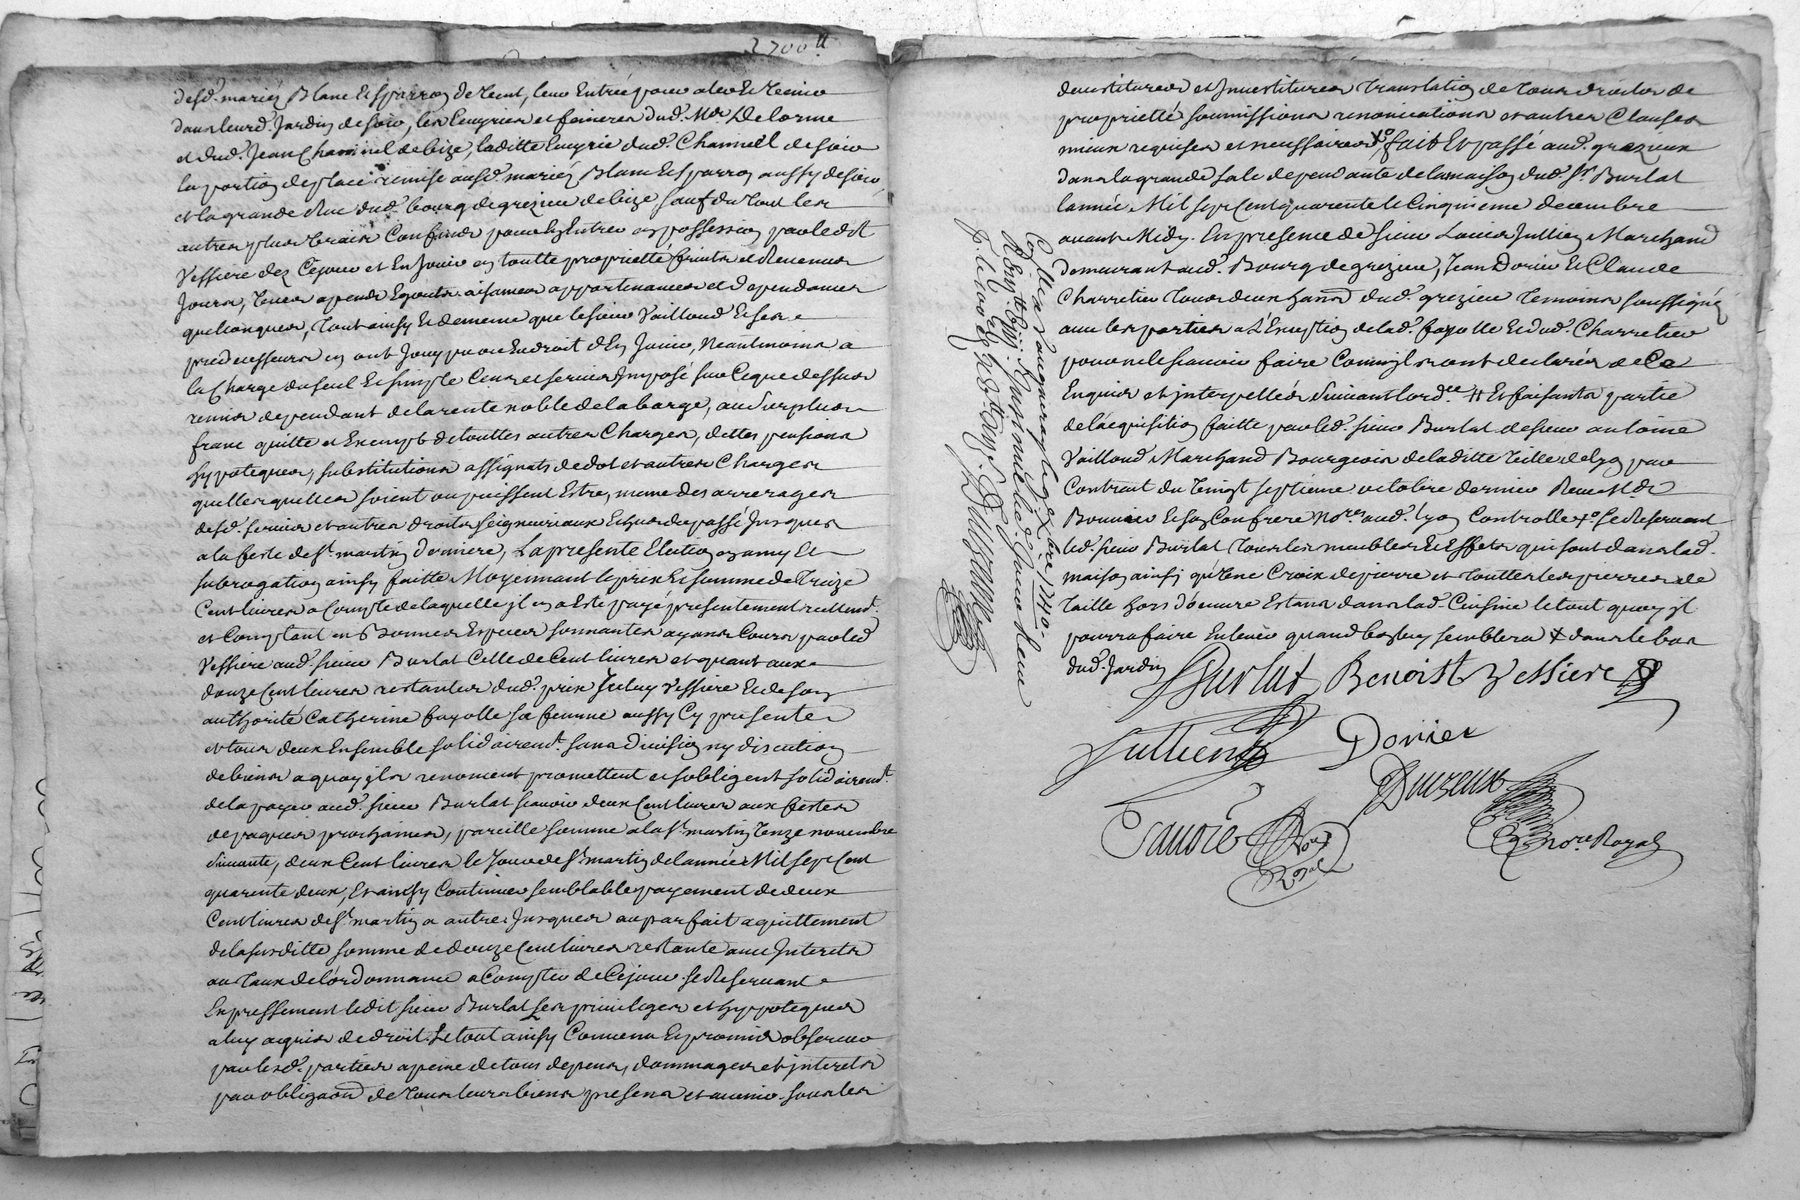 2700tt
desd. mariez Blanc Esparron de vent, leur Entrée pour aler Et venir
dans leurd. Jardin de soir, les Ecuyries et fenieres dud. Mr. Delorme
et dud. Jean Channel de bize, laditte Ecuyrie dud. Channel de soir
la portion de place remise ausd. mariéz Blanc Esparron aussy de soir,
et la grande Rue dud. bourg de grezieu de bize sauf du tout les
autres plus vrais Confins pour En Entrer en possession par ledit
Vessiere dez Cejour et En Jouir en toutte proprietté fruits et Revenus
Jours, vues apends Egouts aisances appartenances et dependances
quelconques, tout ainsy Et de meme que le sieur Vailloud Et ses
predecesseurs en ont Jouy pu ou En droit d'En Jouir, Neantmoins a
la Charge du seul Et simple Cens et servis Imposé sur Ce que dessus
remis dependant de la rente noble de la barge, au Surplus
franc quitte et Exempt de touttes autres Charges, dettes pensions
hypoteques, substitutions assignats de dot et autres Charges
quelles quelles soient ou puissent Estre, meme des arrerages
desd. servis et autres droits seigneuriaux Echus du passé Jusques
a la feste de St. martin derniere, La presente Election en amy Et
subrogation ainsy faitte Moyennant le prix Et somme de Treize
Cent livres a Compte de laquelle jl en a Esté payé presentement reellemt.
et Comptant en Bonnes Especes sonnantes ayans Cours par led
Vessiere aud. sieur Burlat Celle de Cent livres et quant aux
douze Cent livres restantes dud. prix Jceluy Vessiere Et de son
authorité Catherine fayolle sa femme aussy Cy presente
et tous deux Ensemble solidairemt. sans division ny discution
de biens a quoy jls renoncent promettent et sobligent solidairemt.
de la payer aud. sieur Burlat scavoir deux Cent livres aux festes
de paques prochaines, pareille somme a la St. martin onze novembre
suivante, deux Cent livres le Jour de St. martin de l'année Mil sept Cent
quarente deux, Et ainsy Continuer semblable payement de deux
Cent livres de St. martin a autre Jusques au parfait aquittement
de la susditte somme de douze Cent livres restante avec Interets
au taux de l'ordonnance a Compter de Cejour. se Reservant
Expressement ledit sieur Burlat ses privileges et hypoteques
a luy aquis de droit. Le tout ainsy Convenu Et promis observer
par lesd. parties a peine de tous depens, dommages et jnterets
par obligaon de tous leurs biens presens et avenir sous les
devestitures et Jnvestitures translation de tous droits de
proprietté soumissions renonciations et autres Clauses
mieux requises et necessaires, fait Et passé aud. grezieu
dans la grande sale dependante de la maison dud. Sr. Burlat
l'année Mil sept Cent quarente le Cinquieme decembre
avant Midy. En presence de sieur Louis Jullien Marchand
demeurant aud. Bourg de grezieu, Jean Dorier Et Claude
Charretier tous deux hans dud. grezieu temoins soussignéz
avec les parties a L'Exception de lad. fayolle Et dud. Charretier
pour ne le scavoir faire Comm jls ont declarés de Ce
Enquis et jnterpellés Suivant l'ordce. # Et faisants partie
de l'acquisition faitte par led. sieur Burlat de sieur antoine
Vailloud Marchand Bourgeois de laditte Ville de lyon par
Contrat du vingt septieme octobre dernier Receu Mr.
Bonnier Et son Confrere Nores. aud. lyon Controllé se Reservant
led. sieur Burlat tous les meubles Et Effets qui sont dans lad.
maison ainsi qu'Une Croix de pierre et touttes les pierres de
taille hors d'oeuvre Estans dans lad. Cuisine le tout quoy jl
pourra faire Enlever quand bon luy semblera dans le bas
dud. Jardin
Burlat Benoist Vessiere
Jullien Dorier
Duizeux
Favore Nore Royal
nore Royal
1740.